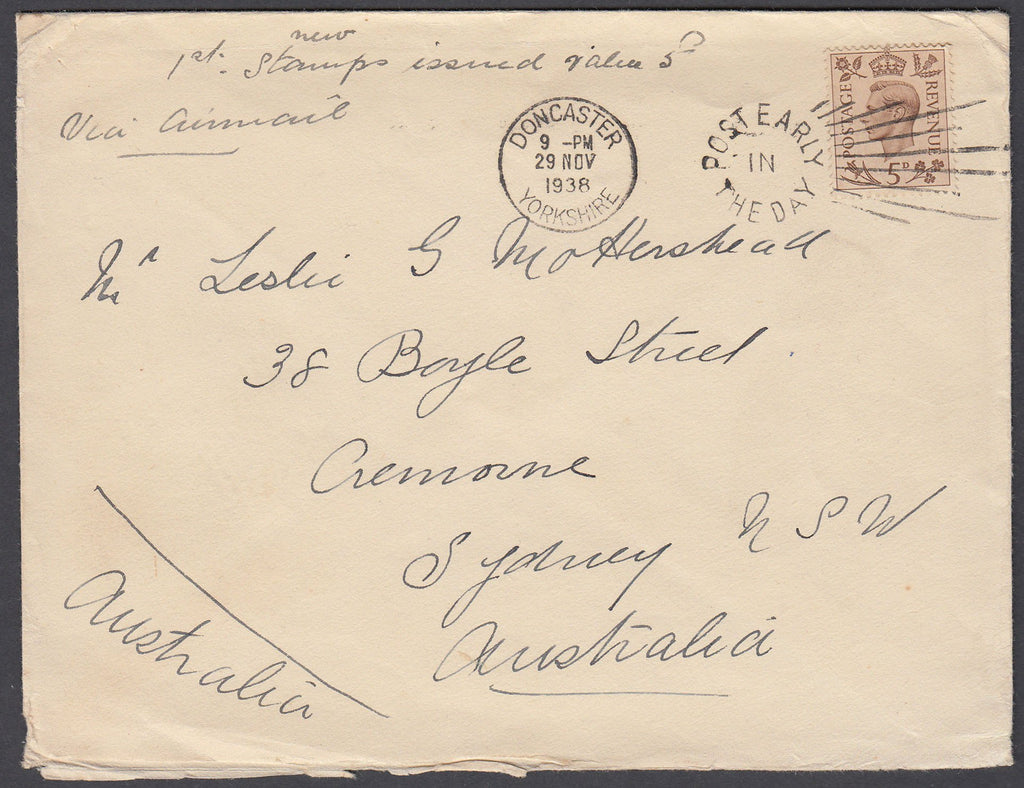 new
1st. Stamps issued value 5D
Via Airmail
DONCASTER
9 -PM
29 NOV
1938
YORKSHIRE
POST EARLY
IN
THE DAY
POSTAGE
REVENUE
5D
Mr Leslie G Mothershead
38 Boyle Street.
Cremorne
Sydney NSW
Australia
Australia